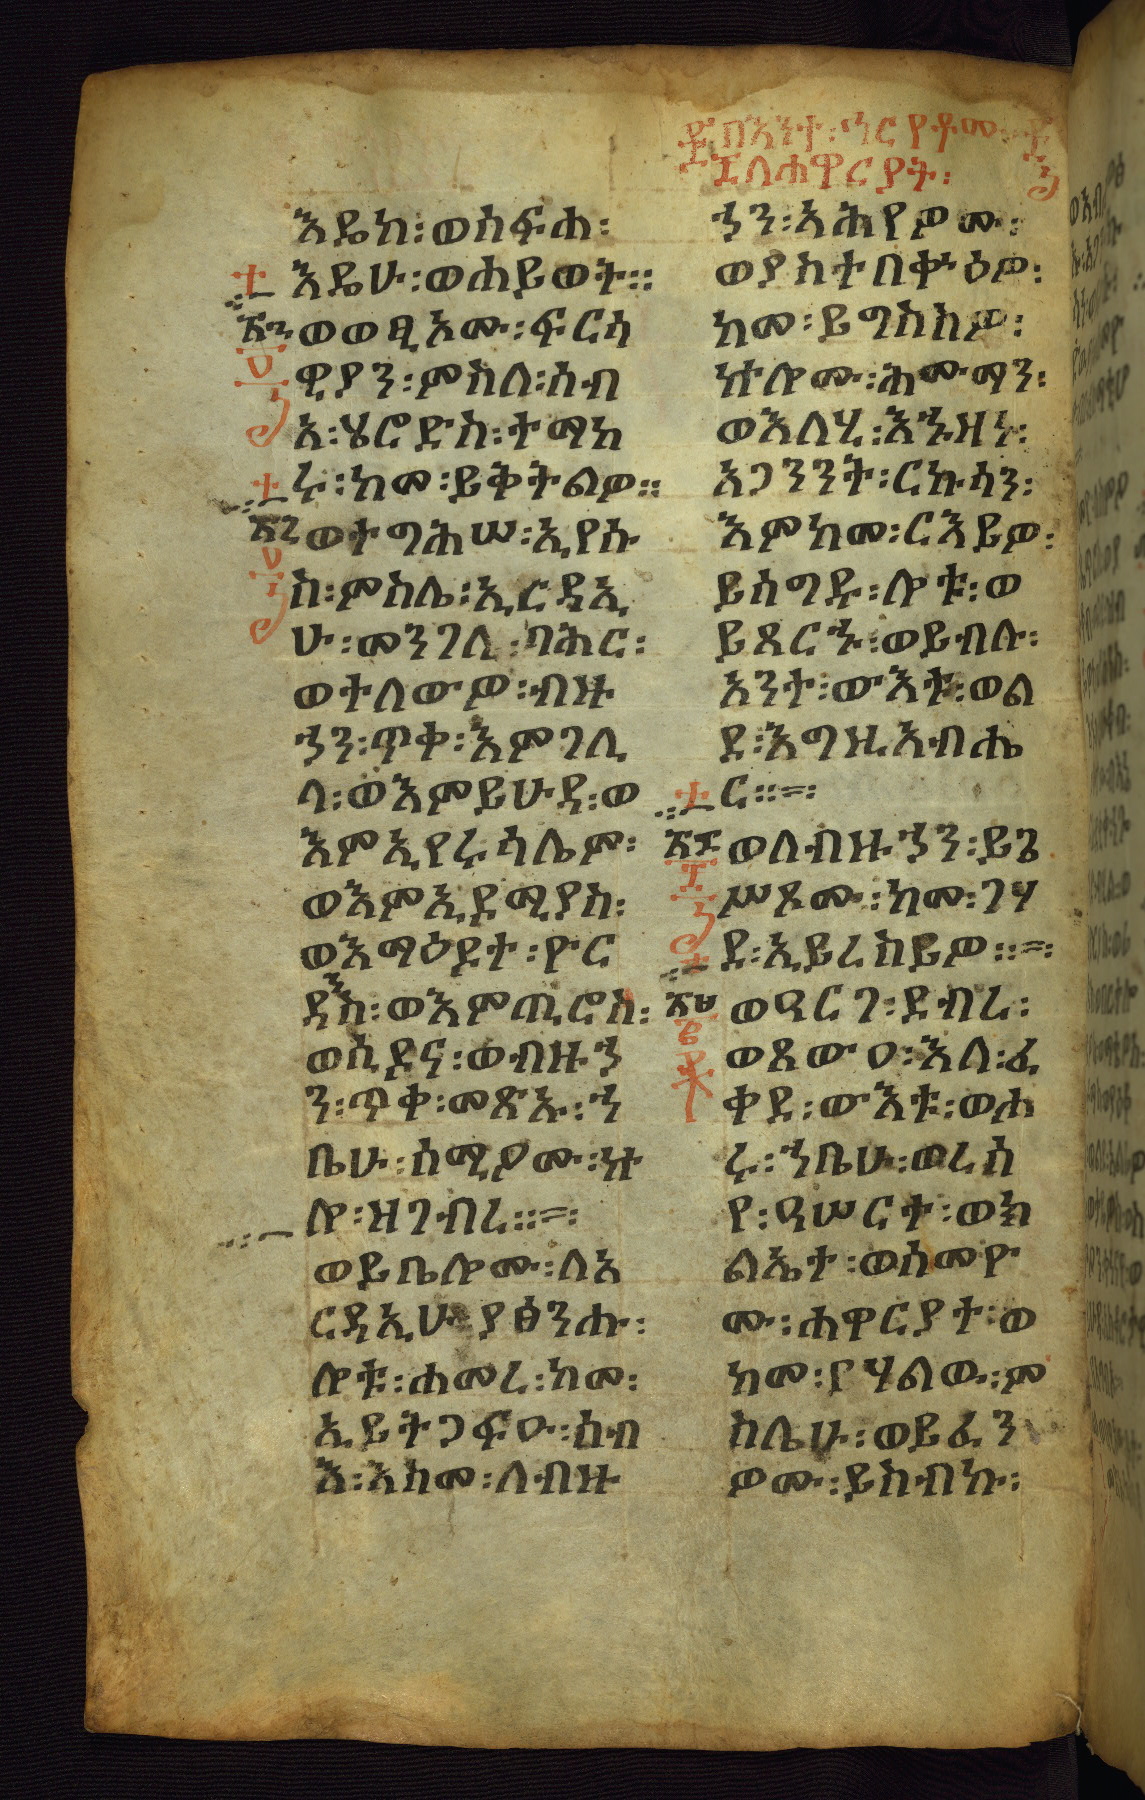 ፰በእንተ፡ኅርየቶሙ፡
፲ለሐዋርያት፡
እዴከ፡ወሰፍሐ፡
እዴሁ፡ወሐይወት።
ወወፂኦሙ፡ፍርሳ
ዊያን፡ምስለ፡ሰብ
አ፡ሄሮድስ፡ተማከ
ሩ፡ከመ፡ይቅትልዎ።
ወተግሕሠ፡ኢየሱ
ስ፡ምስሌ፡ኢርዳኢ
ሁ፡መንገለ፡ባሕር፡
ወተለውዎ፡ብዙ
ኃን፡ጥቀ፡እምገሊ
ላ፡ወእምይሁዳ፡ወ
እምኢየሩሳሌም፡
ወእምኢዶሚያስ፡
ወእማዕዶተ፡ዮር
ዳንስ፡ወእምጢሮስ፡
ወሲዶና፡ወብዙኃ
ን፡ጥቀ፡መጽኡ፡ኀ
ቤሁ፡ሰሚዖሙ፡ኵ
ሎ፡ዝገብረ።=፡
ወይቤሎሙ፡ለአ
ርዳኢሁ፡ያፅንሑ፡
ሎቱ፡ሐመረ፡ከመ፡
ኢይትጋፍዑ፡ሰብ
እ፡እስመ፡ለብዙ
ኃን፡አሕየዎሙ፡
ወያስተበቍዕዎ፡
ከመ፡ይግስስዎ፡
ኵሎሙ፡ሕሙማን፡
ወእለሂ፡እኁዘነ፡
አጋንንት፡ርኩሳን፡
እምከመ፡ርእይዎ፡
ይሰግዱ፡ሎቱ፡ወ
ይጸርኁ፡ወይብሉ፡
አንተ፡ውእቱ፡ወል
ደ፡እግዚአብሔ
ር።=፡
ወለብዙኃን፡ይጌ
ሥጾሙ፡ከመ፡ገሃ
ደ፡ኢይረስይዎ።=፡
ወዓርገ፡ደብረ፡
ወጸውዐ፡እለ፡ፈ
ቀደ፡ውእቱ፡ወሐ
ሩ፡ኀቤሁ፡ወረሰ
የ፡ዓሠርተ፡ወክ
ልኤተ፡ወሰመዮ
ሙ፡ሐዋርያተ፡ወ
ከመ፡የሃልው፡ም
ስሌሁ፡ወይፈን
ዎሙ፡ይስብኩ፡